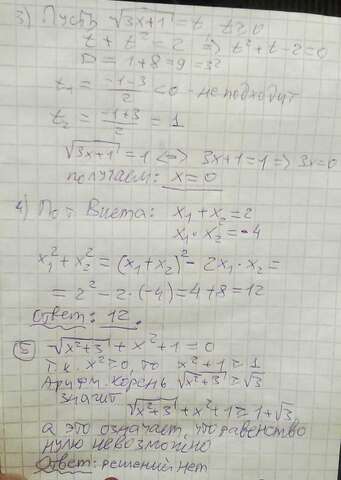 3) Пусть √3x+1 = t, t≥0
t + t² = 2 => t²+t-2=0
D = 1+8=9=3²
t₁ = (-1-3)/2 <0 - не подходит
t₂ = (-1+3)/2 = 1
√3x+1 = 1 <=> 3x+1=1 => 3x=0
получаем: x=0
4) По т Виета: x₁+x₂=2
x₁·x₂=-4
x₁²+x₂² = (x₁+x₂)² - 2x₁·x₂ =
= 2² - 2·(-4)=4+8=12
Ответ: 12.
5 √x²+3 + x²+1=0
Т.к. x²≥0, то x²+1≥1
Арифм. корень √x²+3 ≥ √3
значит
√x²+3 + x²+1≥1+√3,
а это означает, что равенство
нулю невозможно
Ответ: решений нет